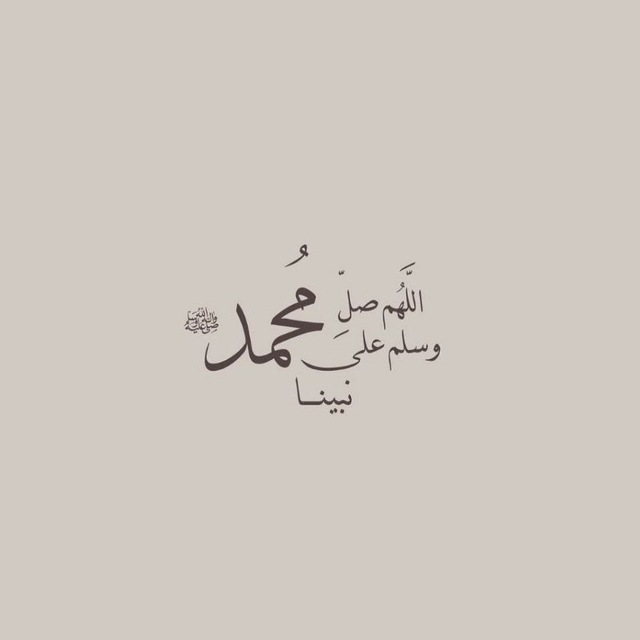 اللَّهُم صلِّ
وسلم على
نبينـا
مُحمد ﷺ